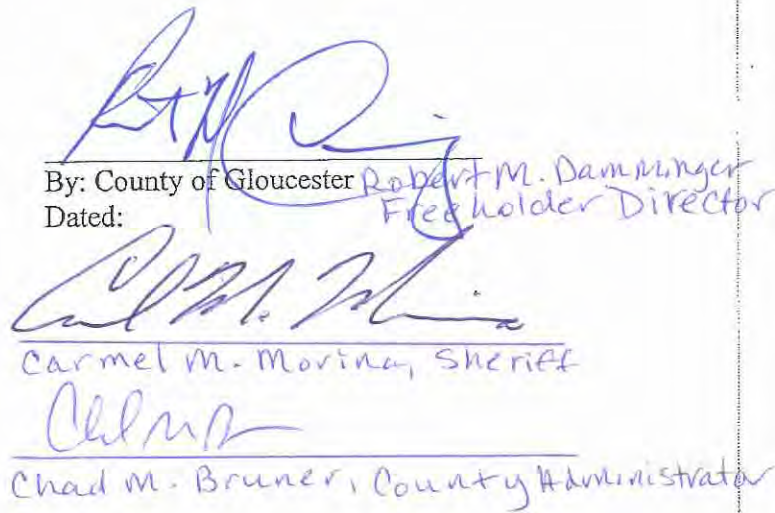 By: County of Gloucester Robert M. Damminger
Freeholder Director
Dated:
Carmel M. Morina, Sheriff
Chad M. Bruner, County Administrator